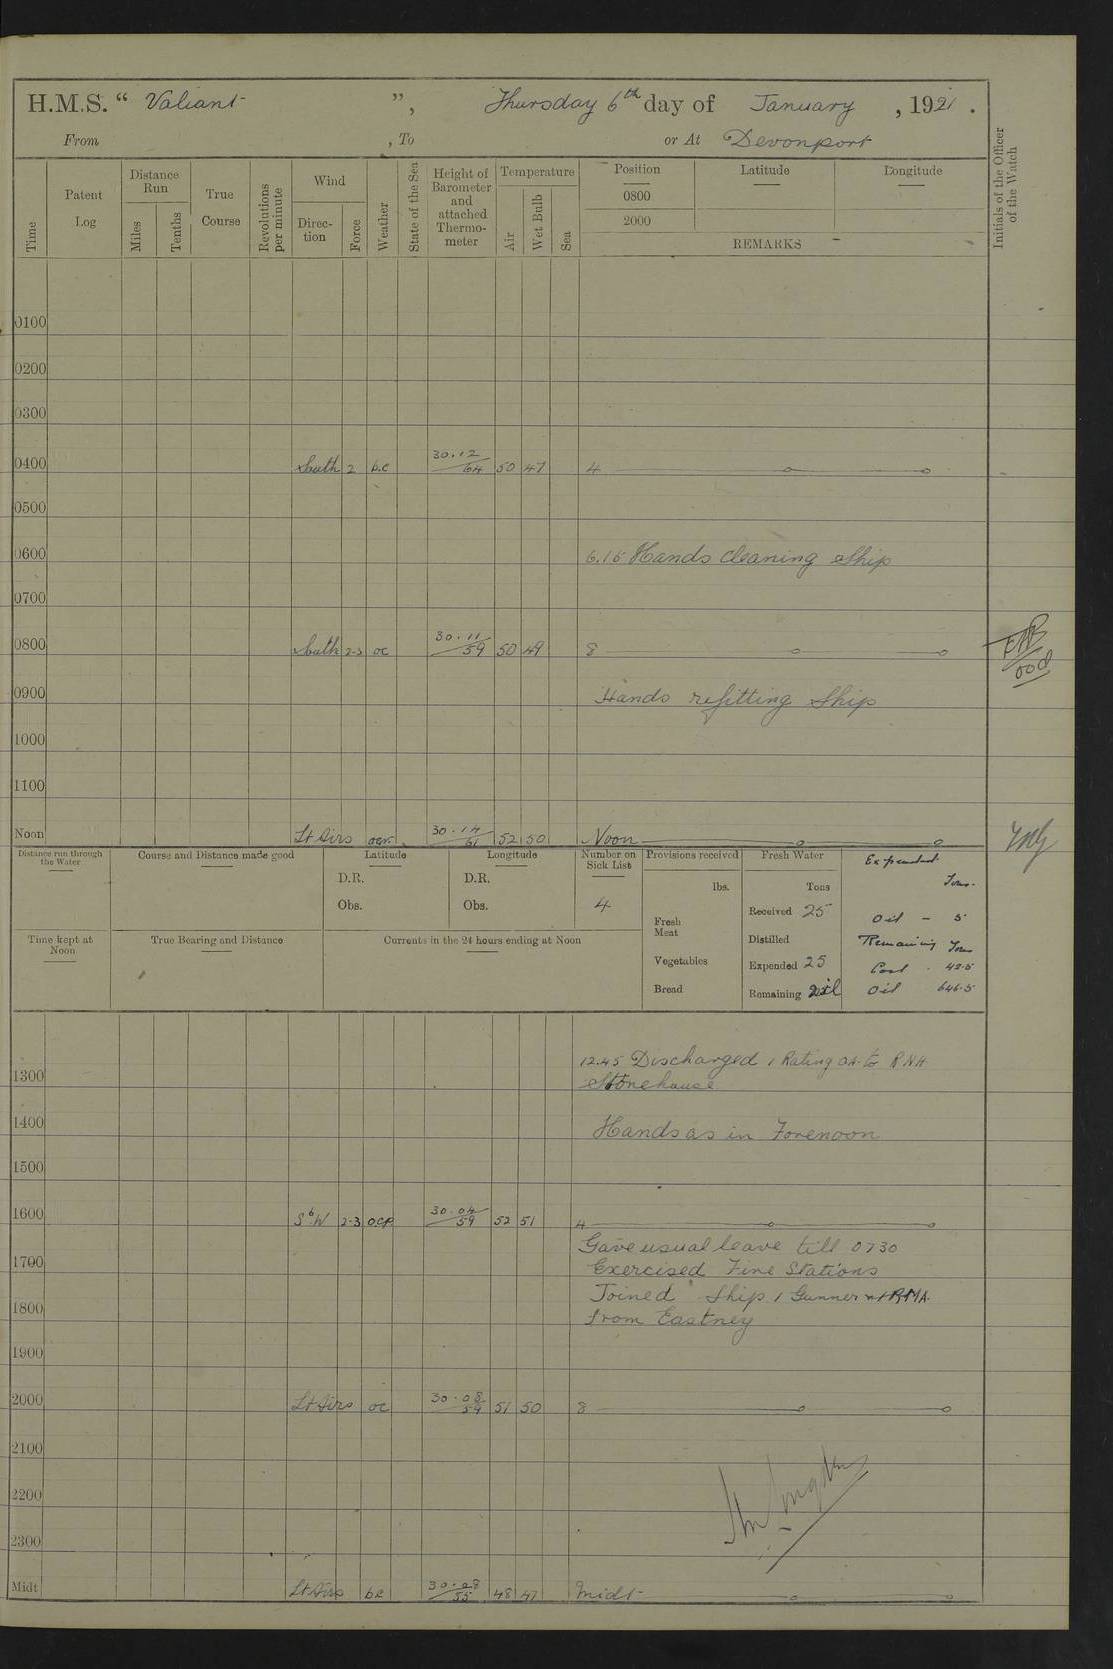 H.M.S. “ Valiant ”, Thursday 6th day of January , 1921 .
From , To or At Devonport
Time
Patent Log
Distance Run
Miles
Tenths
True Course
Revolutions per minute
Wind
Direction
Force
Weather
State of the Sea
Height of Barometer and attached Thermometer
Temperature
Air
Wet Bulb
Sea
Position
0800
2000
Latitude
Longitude
REMARKS
Initials of the Officer of the Watch
0100
0200
0300
0400 South 2 b.c 30.12 64 50 47 4
0500
0600 6.15 Hands cleaning Ship
0700
0800 South 2-3 oc 30.11 59 50 49 8
0900 Hands refitting Ship
1000
1100
Noon Lt Airs 30.14 61 52 50 Noon
Distance run through the Water
Course and Distance made good
Latitude
D.R.
Obs.
Longitude
D.R.
Obs.
Number on Sick List
4
Provisions received
lbs.
Fresh Meat
Vegetables
Bread
Fresh Water
Tons
Received 25
Distilled
Expended 25
Remaining
Expended
Tons.
Oil - 5
Remaining Tons
Coal . 42.5
Oil 646.5
Time kept at Noon
True Bearing and Distance
Currents in the 24 hours ending at Noon
12.45 Discharged 1 Rating to R.N.H
1300 Stonehouse
1400 Hands as in Forenoon
1500
1600 S b W 2-3 ocp 30.04 59 52 51 4
Gave usual leave till 0730
1700 Exercised Fire Stations
Joined Ship 1 Gunner RMA.
1800 from Eastney
1900
2000 Lt Airs oc 30.08 59 51 50 8
2100
2200
2300
Midt Lt Airs bc 30.08 55 48 47 Midt